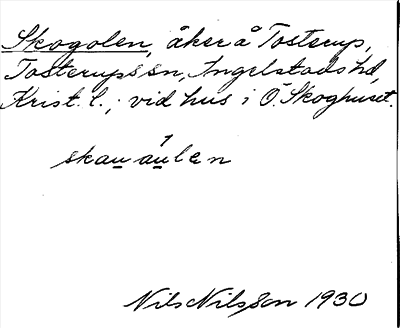 Skogolen, åker å Tosterup,
Tosterups sn, Ingelstads hd,
Krist. l.; vid hus i Ö. Skoghuset.
skau áulen
Nils Nilsson 1930